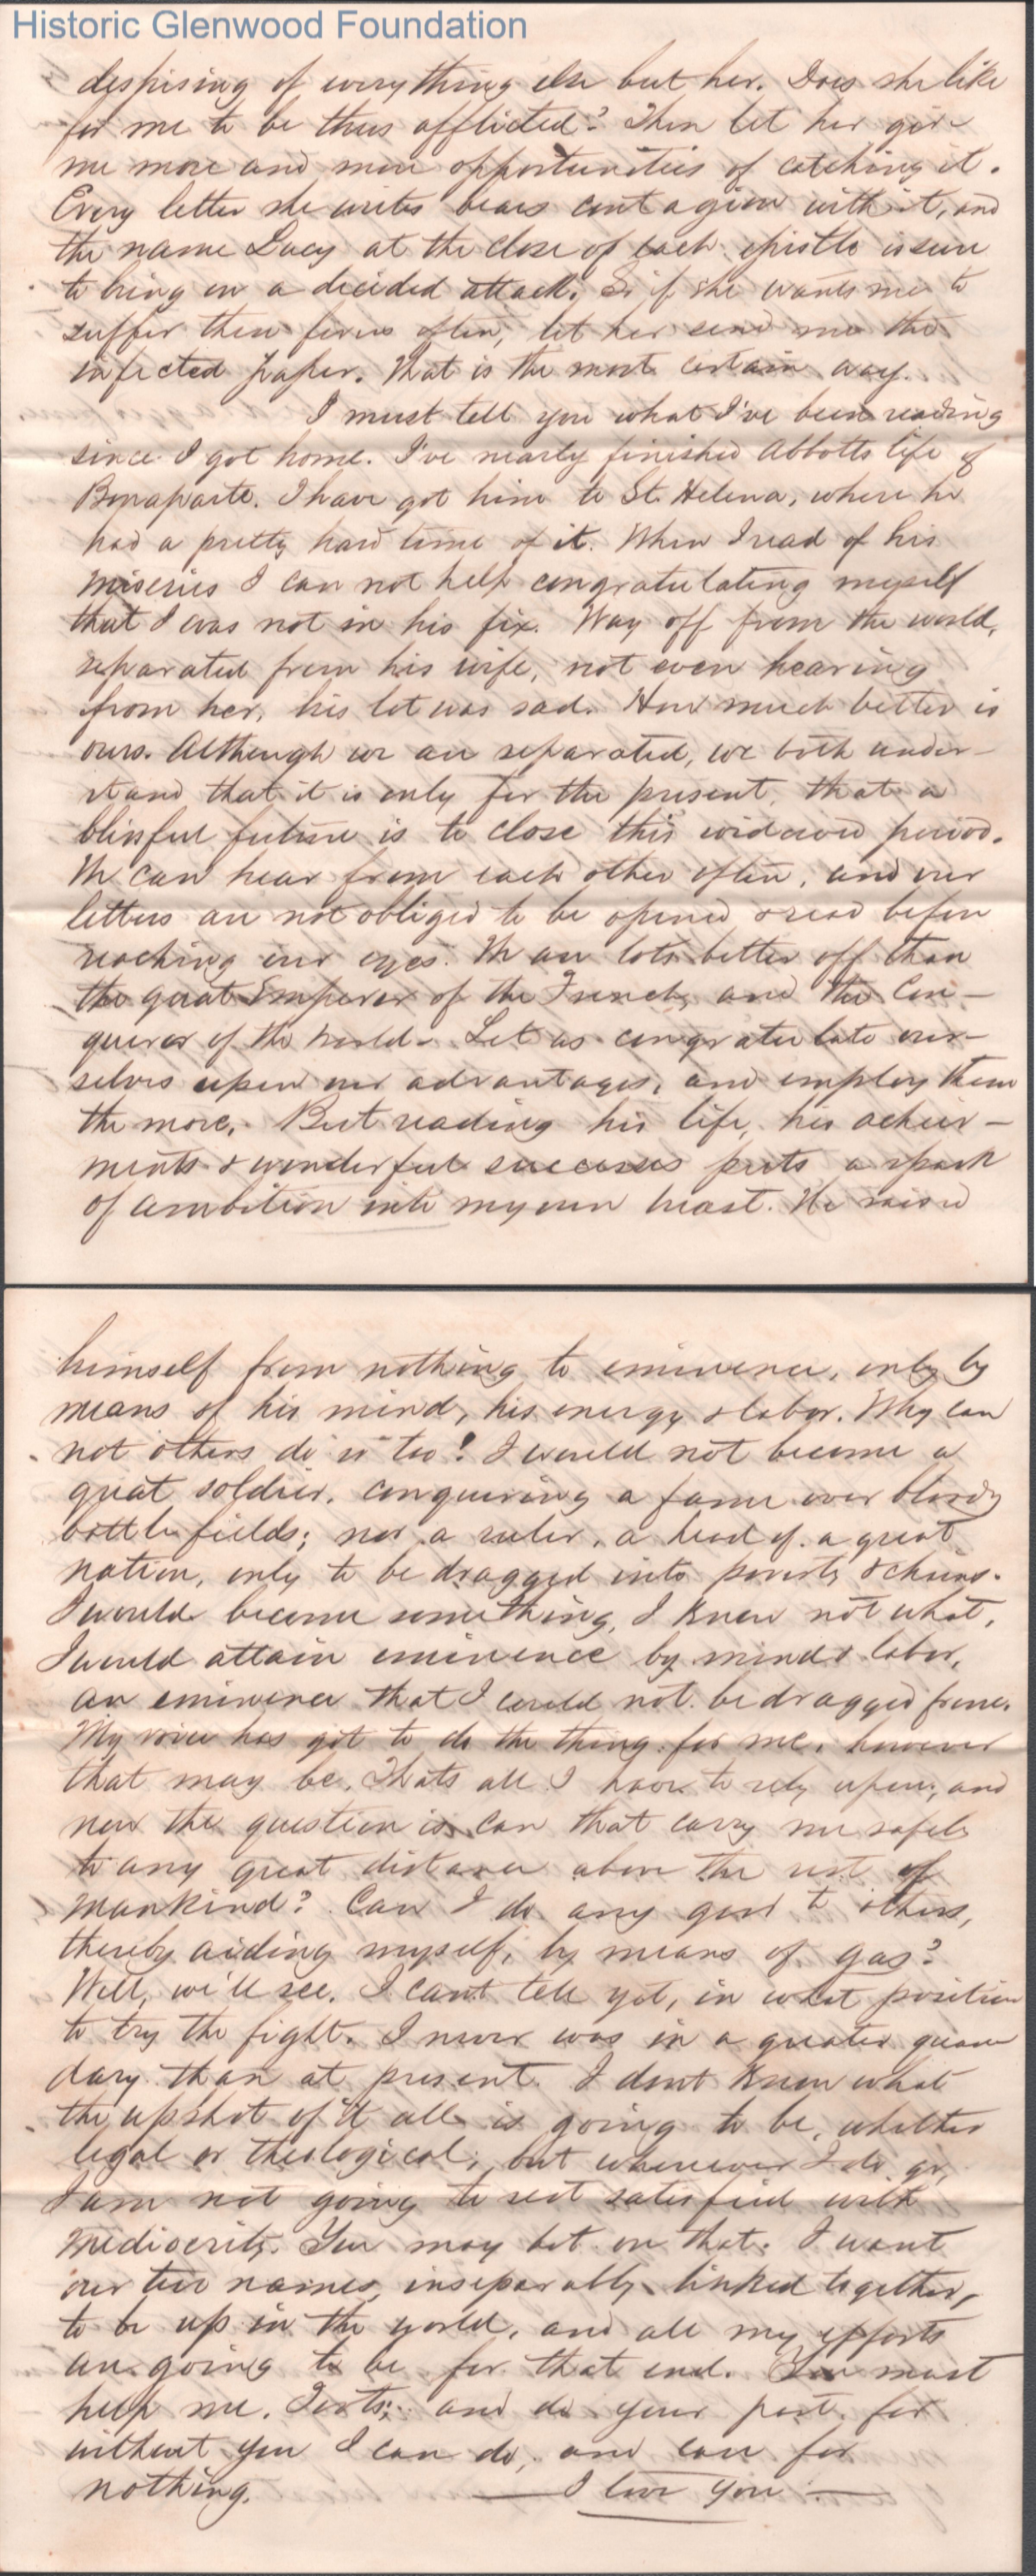 Historic Glenwood Foundation
despising of everything else but her. Does she like
for me to be thus afflicted? Then let her give
me more and more opportunities of catching it.
Every letter she writes bears contagion with it, and
the name Lucy at the close of each epistle is sure
to bring on a decided attack. So if she wants me to
suffer these fevers often, let her send me the
infected paper. That is the most certain way.
I must tell you what I've been reading
since I got home. I've nearly finished Abbotts life of
Bonaparte. I have got him to St. Helena, where he
had a pretty hard time of it. When I read of his
miseries I can not help congratulating myself
that I was not in his fix. Way off from the world,
separated from his wife, not even hearing
from her, his lot was sad. How much better is
ours. Although we are separated, we both under-
stand that it is only for the present, that a
blissful future is to close this widowed period.
We can hear from each other often, and our
letters are not obliged to be opened & read before
reaching our eyes. We are lots better off than
the great Emperor of the French, and the Con-
queror of the World. Let us congratulate our-
selves upon our advantages, and employ them
the more. But reading his life, his achieve-
ments & wonderful successes puts a spark
of ambition into my own heart. He raised
himself from nothing to eminence, only by
means of his mind, his energy & labor. Why can
not others do so too? I would not become a
great soldier, conquering a fame over bloody
battle fields; nor a ruler, a head of a great
nation, only to be dragged into poverty & chains.
I would become something, I know not what,
I would attain eminence by mind & labor,
an eminence that I could not be dragged from.
My voice has got to do the thing for me, however
that may be. Thats all I have to rely upon; and
now the question is can that carry me safely
to any great distance above the rest of
mankind? Can I do any good to others,
thereby aiding myself, by means of gas?
Well, we'll see. I can't tell yet, in what position
to try the fight. I never was in a greater quan
dary than at present. I dont know what
the upshot of it all is going to be, whether
legal or theological; but wherever I do go,
I am not going to rest satisfied with
mediocrity. You may bet on that. I want
our two names, inseparably linked together,
to be up in the world, and all my efforts
are going to be for that end. You must
help me, and do your part, for
without you I can do, and care for
nothing. — I love you —